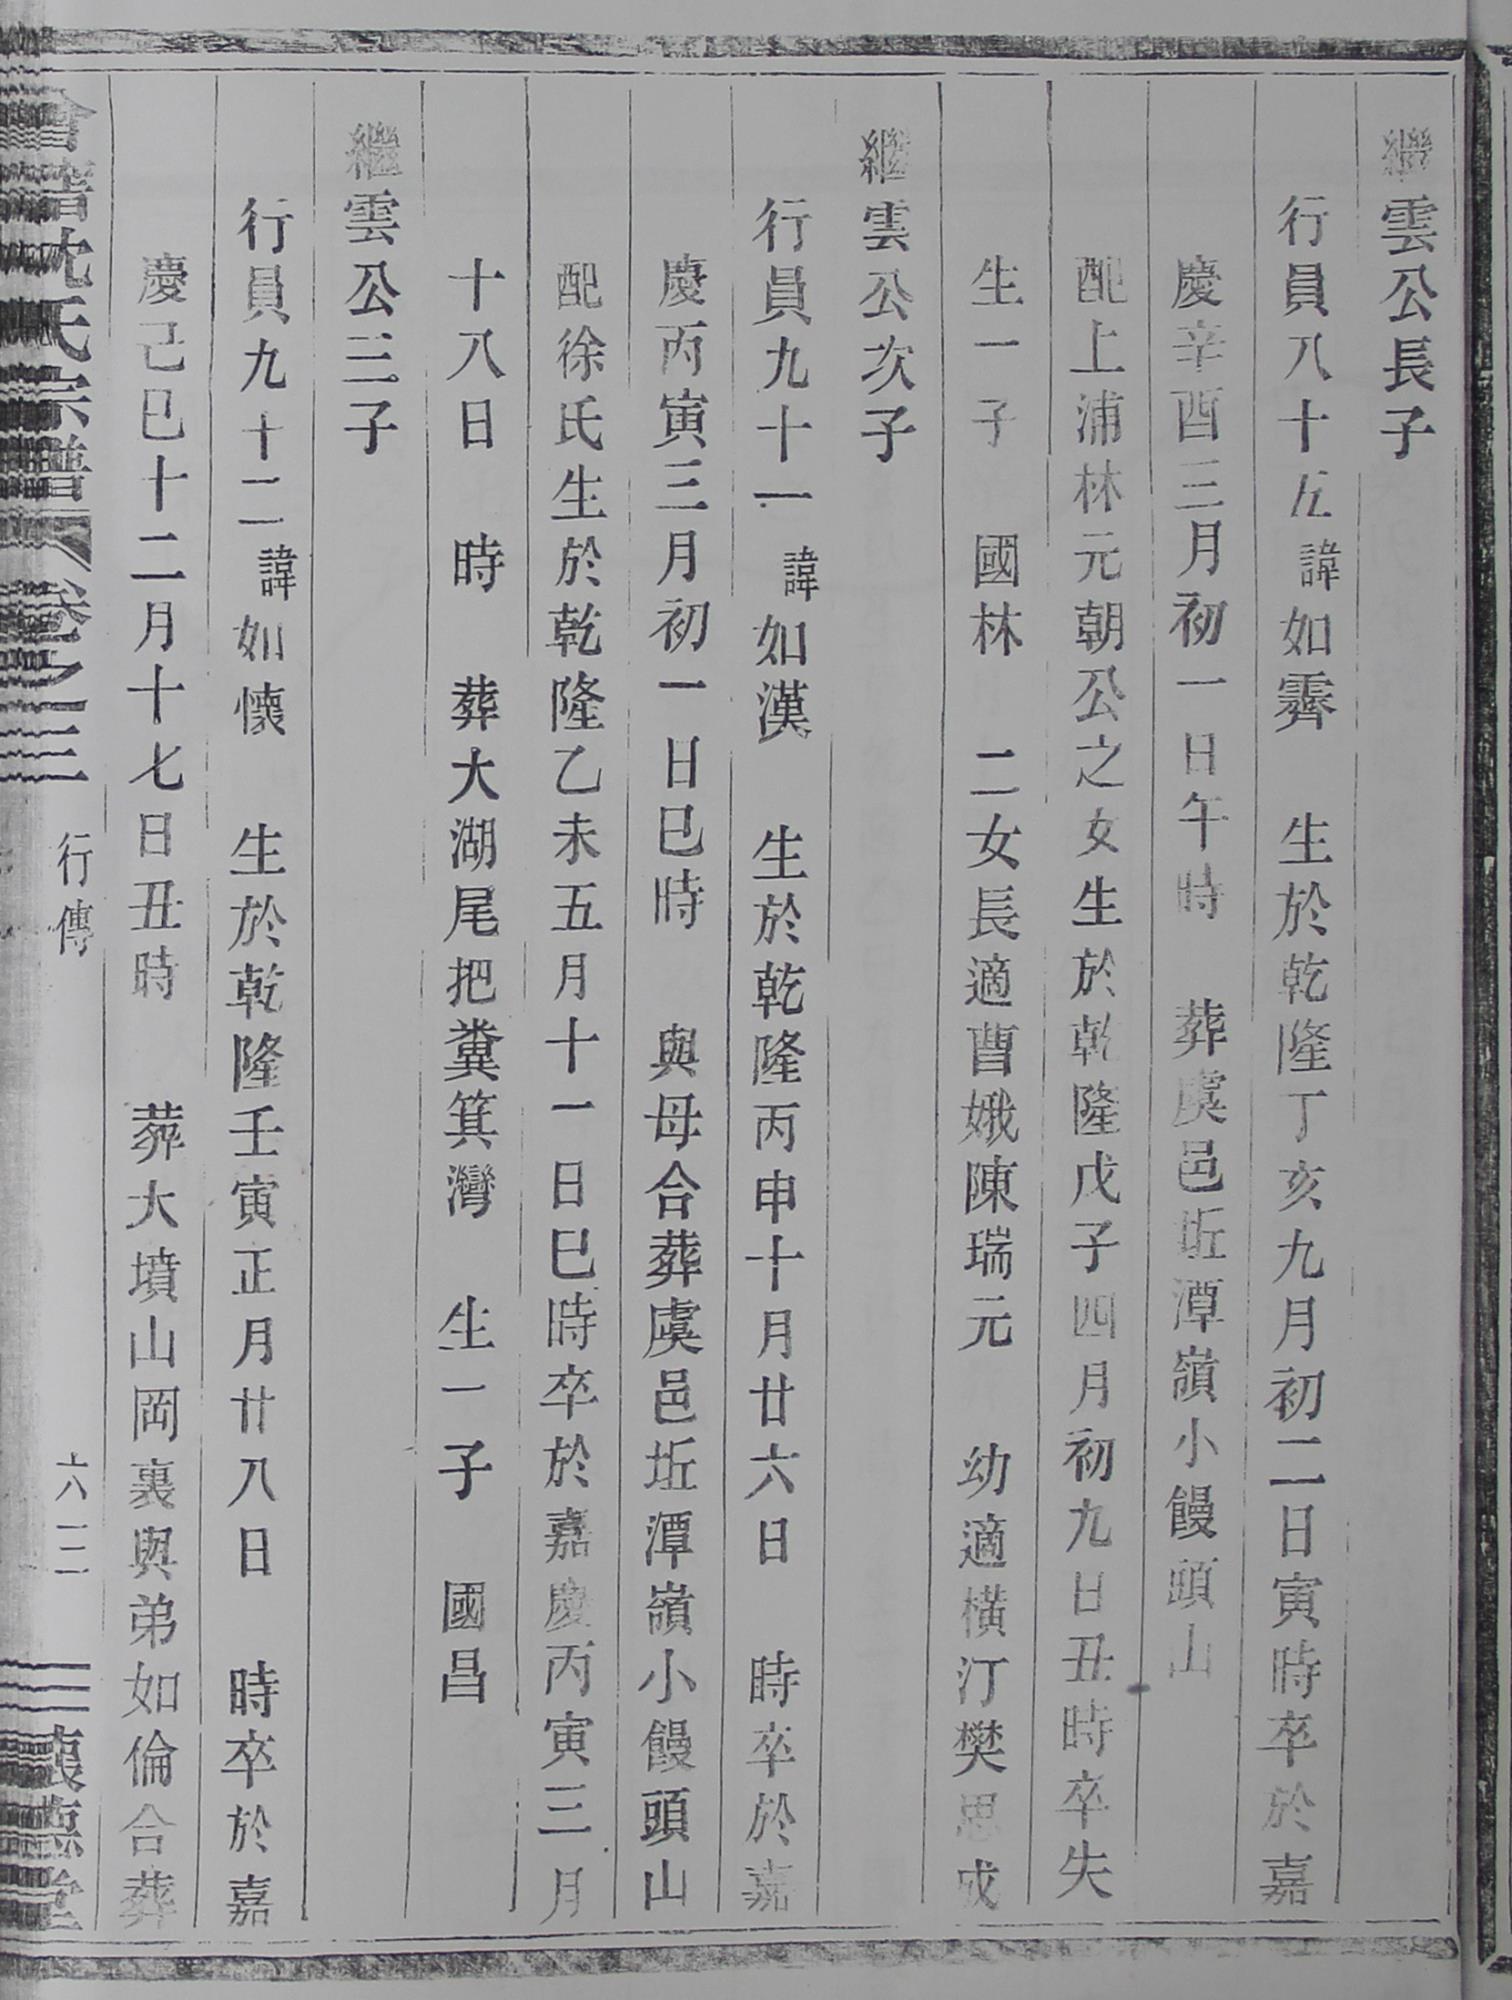 繼雲公長子
行員八十五諱如霽 生於乾隆丁亥九月初二日寅時卒於嘉
慶辛酉三月初一日午時 葬虞邑坵潭嶺小饅頭山
配上浦林元朝公之女生於乾隆戊子四月初九日丑時卒失
生一子 國林 二女長適曹娥陳瑞元 幼適橫汀樊思成
繼雲公次子
行員九十一諱如漢 生於乾隆丙申十月廿六日 時卒於嘉
慶丙寅三月初一日巳時 與母合葬虞邑坵潭嶺小饅頭山
配徐氏生於乾隆乙未五月十一日巳時卒於嘉慶丙寅三月
十八日 時 葬大湖尾把糞箕灣 生一子 國昌
繼雲公三子
行員九十二諱如懷 生於乾隆壬寅正月廿八日 時卒於嘉
慶己巳十二月十七日丑時 葬大墳山岡裏與弟如倫合葬
會稽沈氏宗譜 卷之三 行傳 六二